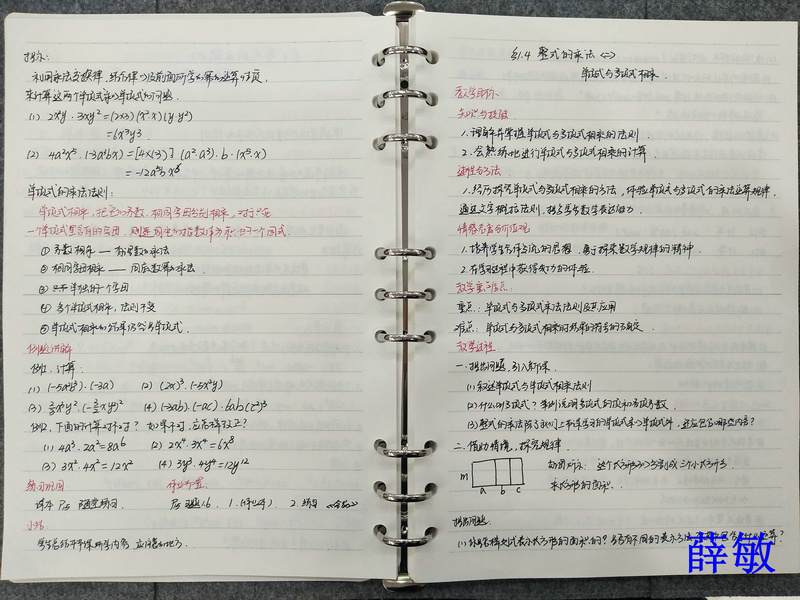 提示:
利用乘法交换律,结合律以及前面所学的幂的运算性质,
来计算这两个单项式乘以单项式的问题.
(1) 2x²y·3xy²=(2×3)(x²·x)(y·y²)
=6x³y³
(2) 4a²x⁵·(-3a³bx)=[4×(-3)](a²·a³)·b·(x⁵·x)
=-12a⁵bx⁶
单项式的乘法法则:
单项式相乘,把它们的系数、相同字母分别相乘,对于只在
一个单项式里含有的字母,则连同它的指数作为积的一个因式.
① 系数相乘——有理数的乘法
② 相同字母相乘——同底数幂的乘法.
③ 只在单独的一个字母
④ 多个单项式相乘,法则不变
⑤ 单项式相乘的结果仍然是单项式.
例题讲解
例1,计算:
(1) (-5a²b³)·(-3a) (2) (2x)³·(-5x²y)
(4) (-3ab)·(-a²c)·6ab(c²)³
例2,下面的计算对不对?如果不对,应怎样改正?
(1) 4a³·2a²=8a⁶ (2) 2x⁴·3x⁴=6x⁸
(3) 3x²·4x²=12x² (4) 3y³·4y⁴=12y¹²
练习巩固 作业布置
课本 随堂练习 习题1.6 1. 2.
小结
学生总结本节课所学内容,
§1.4 整式的乘法<二>
单项式与多项式相乘.
教学目标
知识与技能
1.理解并掌握单项式与多项式相乘的法则.
2.会熟练地进行单项式与多项式相乘的计算.
过程与方法
1.经历探究单项式与多项式相乘的方法,体验单项式与多项式的乘法运算规律,
通过文字概括法则,提高学生数学表达能力.
情感态度与价值观
1.培养学生合作交流的思想,勇于探索数学规律的精神.
2.在学习过程中获得成功的体验.
教学重、难点:
重点:单项式与多项式乘法法则及其应用
难点:单项式与多项式相乘时结果的符号的确定.
教学过程
一.提出问题,引入新课.
(1)叙述单项式与单项式相乘法则
(2)什么叫多项式?举例说明多项式的项和各项系数.
(3)整式的乘法除了我们上节课学习的单项式乘以单项式外,还应包含哪些内容?
二.借助情境,探究规律.
如图所示:这个长方形可分割成三个小长方形.
求长方形的面积.
m
a b c
提出问题.
(1)你是怎样列式表示长方形的面积的?
薛敏